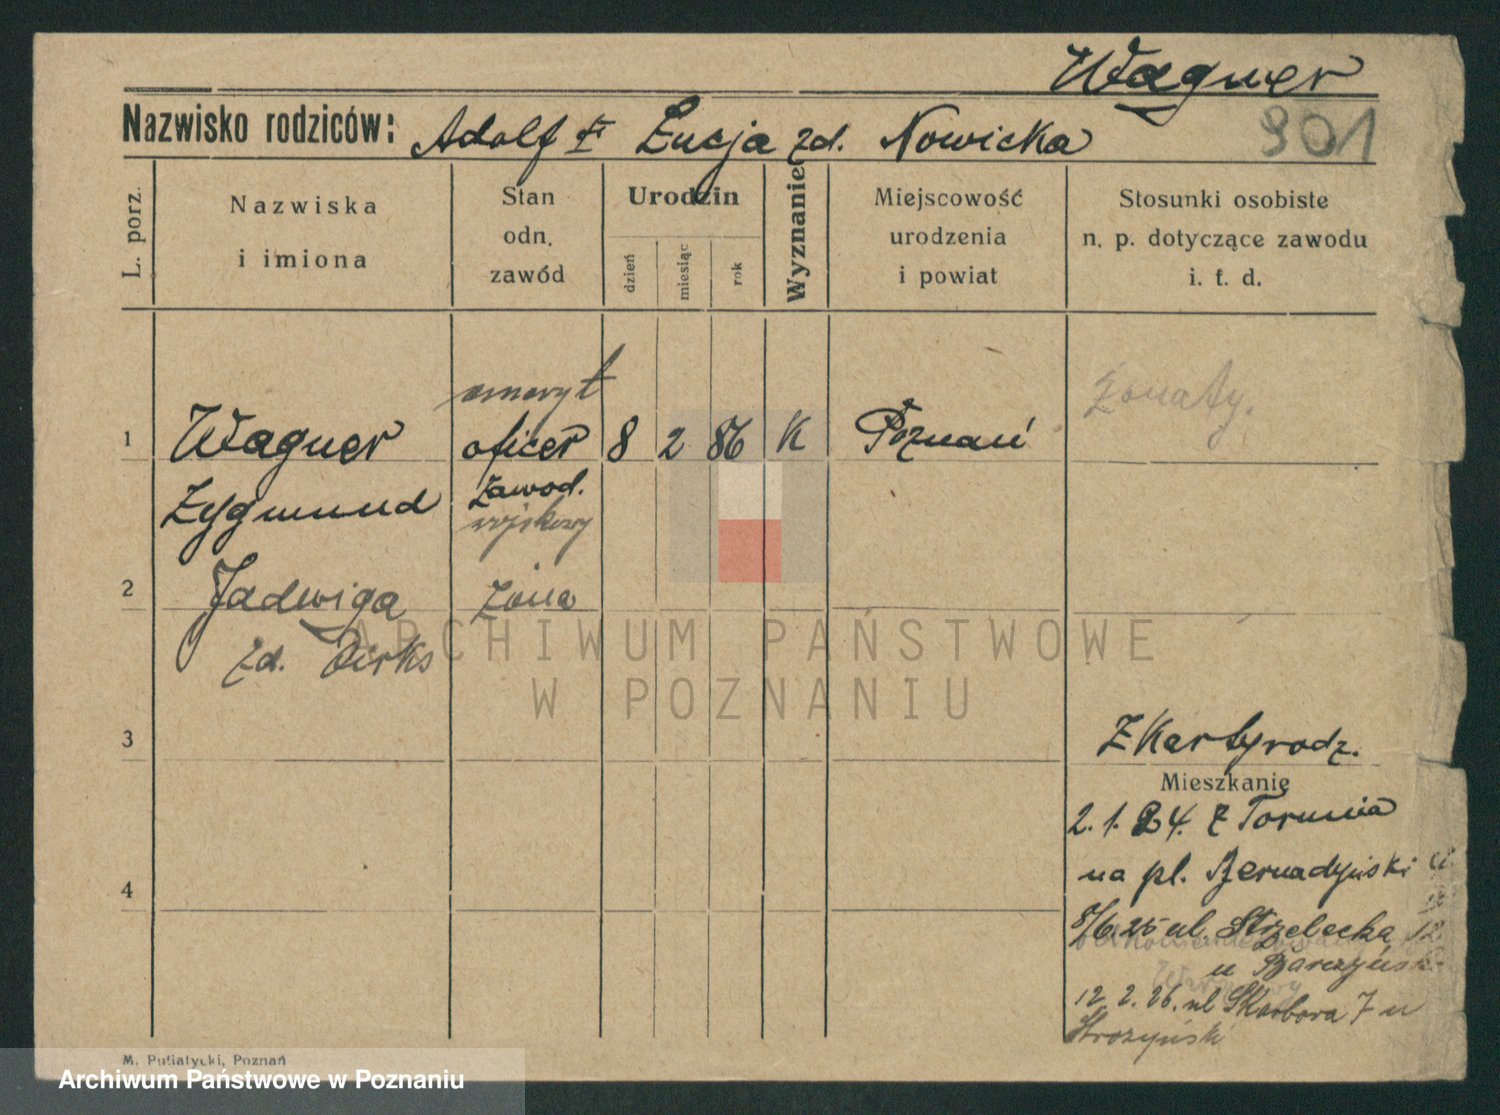 Wagner
Nazwisko rodziców: Adolf Łucja zd. Nowicka
901
L. porz.
Nazwiska
i imiona
Stan
odn.
zawód
Urodzin
dzień
miesiąc
rok
Wyznanie
Miejscowość
urodzenia
i powiat
Stosunki osobiste
n. p. dotyczące zawodu
i. t. d.
1
Wagner
Zygmund
emeryt
oficer
zawod.
wojskowy
8
2
86
K
Poznań
żonaty.
2
Jadwiga
zd. Dirks
żona
ARCHIWUM PAŃSTWOWE
W POZNANIU
3
Z Karty rodz.
Mieszkanie
2. 1. 24. z Torunia
na pl. Bernadyński
4
8/6. 25 ul. Strzelecka 12
u
12. 2. 26. ul Skarbora 7 u
Strozyński
M. Putiatycki, Poznań
Archiwum Państwowe w Poznaniu